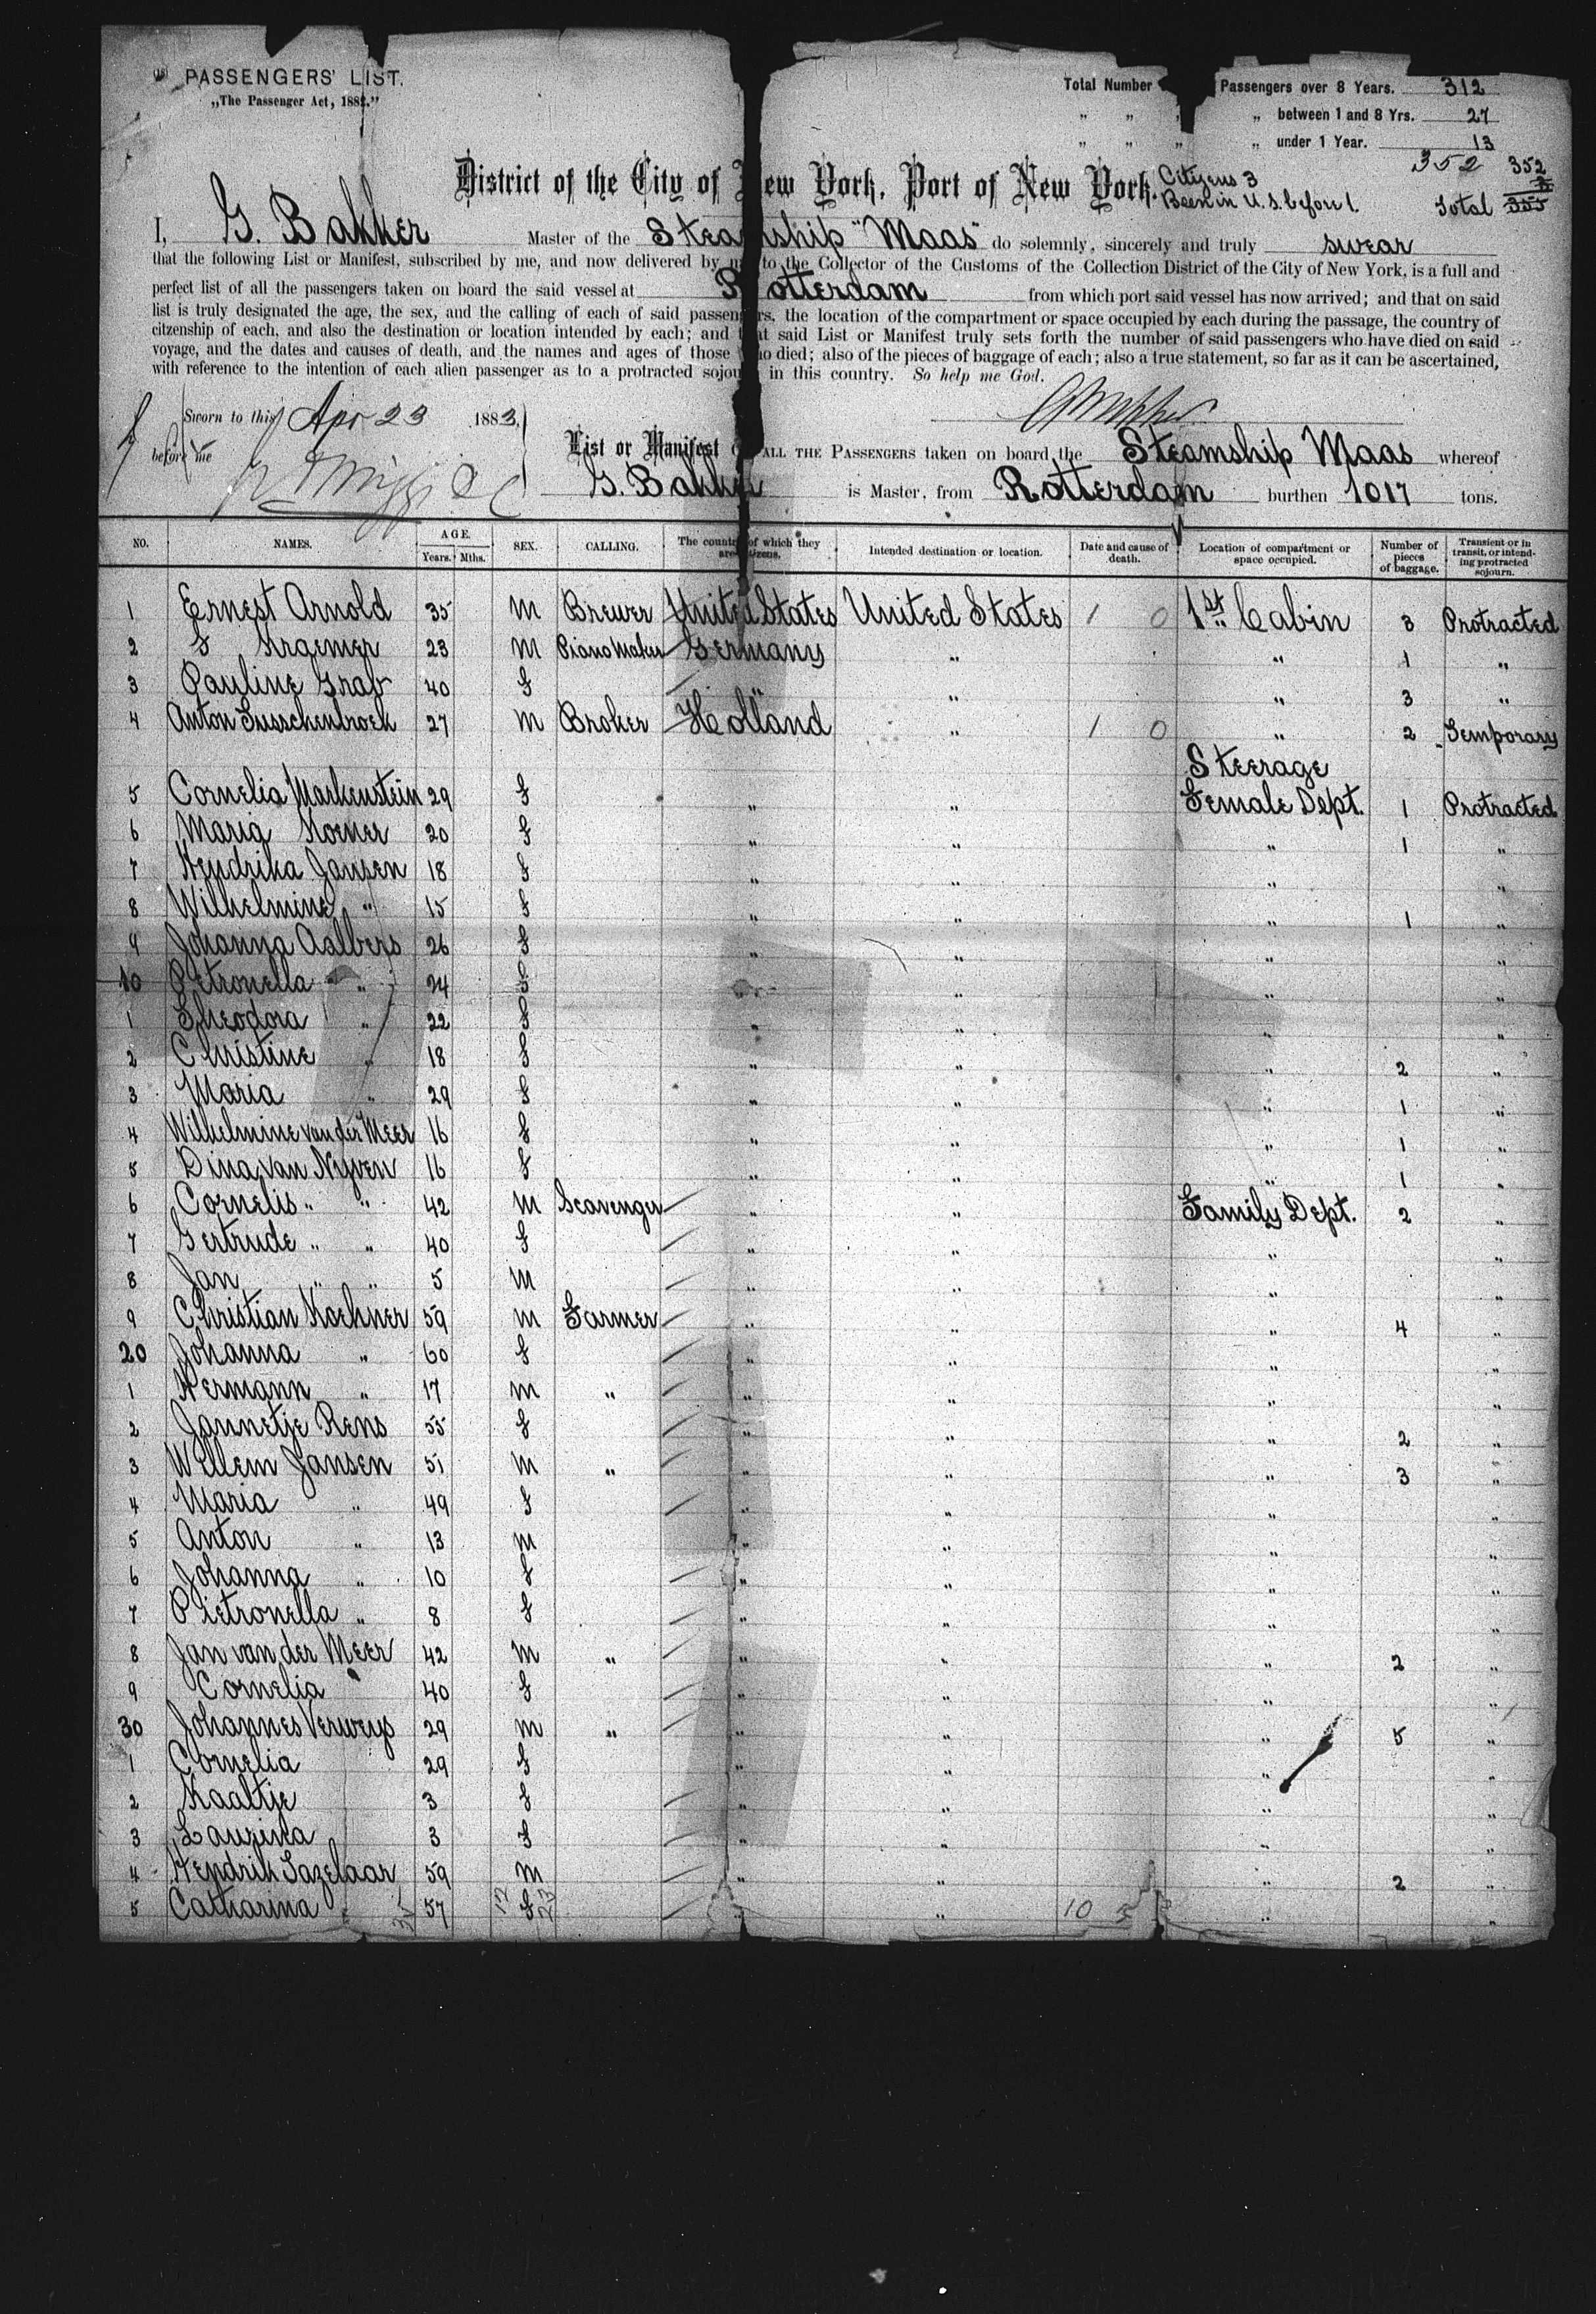 PASSENGERS' LIST.
„The Passenger Act, 1882."
Total Number Passengers over 8 Years. 312
„ „ „ „ between 1 and 8 Yrs. 27
„ „ „ „ under 1 Year. 13
352 352
District of the City of New York, Port of New York.
Citizens 3
Been in U. S. before 1.
Total 355
I, G. Bakker Master of the Steamship "Maas" do solemnly, sincerely and truly swear
that the following List or Manifest, subscribed by me, and now delivered by me to the Collector of the Customs of the Collection District of the City of New York, is a full and
perfect list of all the passengers taken on board the said vessel at Rotterdam from which port said vessel has now arrived; and that on said
list is truly designated the age, the sex, and the calling of each of said passengers, the location of the compartment or space occupied by each during the passage, the country of
citzenship of each, and also the destination or location intended by each; and that said List or Manifest truly sets forth the number of said passengers who have died on said
voyage, and the dates and causes of death, and the names and ages of those who died; also of the pieces of baggage of each; also a true statement, so far as it can be ascertained,
with reference to the intention of each alien passenger as to a protracted sojourn in this country. So help me God.
Sworn to this Apr 23 1883,
before me
List or Manifest OF ALL THE PASSENGERS taken on board the Steamship Maas whereof
G. Bakker is Master, from Rotterdam burthen 1017 tons.
NO. NAMES. AGE. Years. Mths. SEX. CALLING. The country of which they are citizens. Intended destination or location. Date and cause of death. Location of compartment or space occupied. Number of pieces of baggage. Transient or in transit, or intending protracted sojourn.
1 Ernest Arnold 35 M Brewer United States United States 1 0 1st Cabin 3 Protracted
2 F Kraemer 23 M Piano Maker Germany „ „ 1 „
3 Pauline Grab 40 F „ „ „ 3 „
4 Anton Susschenbroek 27 M Broker Holland „ 1 0 „ 2 Temporary
Steerage
5 Cornelia Markenstein 29 F „ „ Female Dept. 1 Protracted
6 Maria Koener 20 F „ „ „ 1 „
7 Hendrika Jansen 18 F „ „ „ „
8 Wilhelmine „ 15 F „ „ „ 1 „
9 Johanna Aalbers 26 F „ „ „ „
10 Petronella „ 24 F „ „ „
1 Theodora „ 22 F „ „ „ „
2 Christine „ 18 F „ „ „ 2 „
3 Maria „ 29 F „ „ „ 1 „
4 Wilhelmine van der Meer 16 F „ „ „ 1 „
5 Dina van Nyven 16 F „ „ „ 1 „
6 Cornelis „ „ 42 M Scavenger „ „ Family Dept. 2 „
7 Gertrude „ „ 40 F „ „ „ „
8 Jan „ „ 5 M „ „ „ „
9 Christian Koehner 59 M Farmer „ „ „ 4 „
20 Johanna „ 60 F „ „ „ „
1 Hermann „ 17 M „ „ „ „ „
2 Jannetje Rens 55 F „ „ „ 2 „
3 Willem Jansen 51 M „ „ „ „ 3 „
4 Maria „ 49 F „ „ „ „
5 Anton „ 13 M „ „ „ „
6 Johanna „ 10 F „ „ „ „
7 Pietronella „ 8 F „ „ „ „
8 Jan van der Meer 42 M „ „ „ „ 2 „
9 Cornelia „ 40 F „ „ „ „
30 Johannes Verweys 29 M „ „ „ „ 5 „
1 Cornelia 29 F „ „ „ „
2 Kaaltje 3 F „ „ „ „
3 Laurina 3 F „ „ „ „
4 Hendrik Sazelaar 59 M „ „ „ 2 „
5 Catharina 57 F „ „ 10 3 „ „